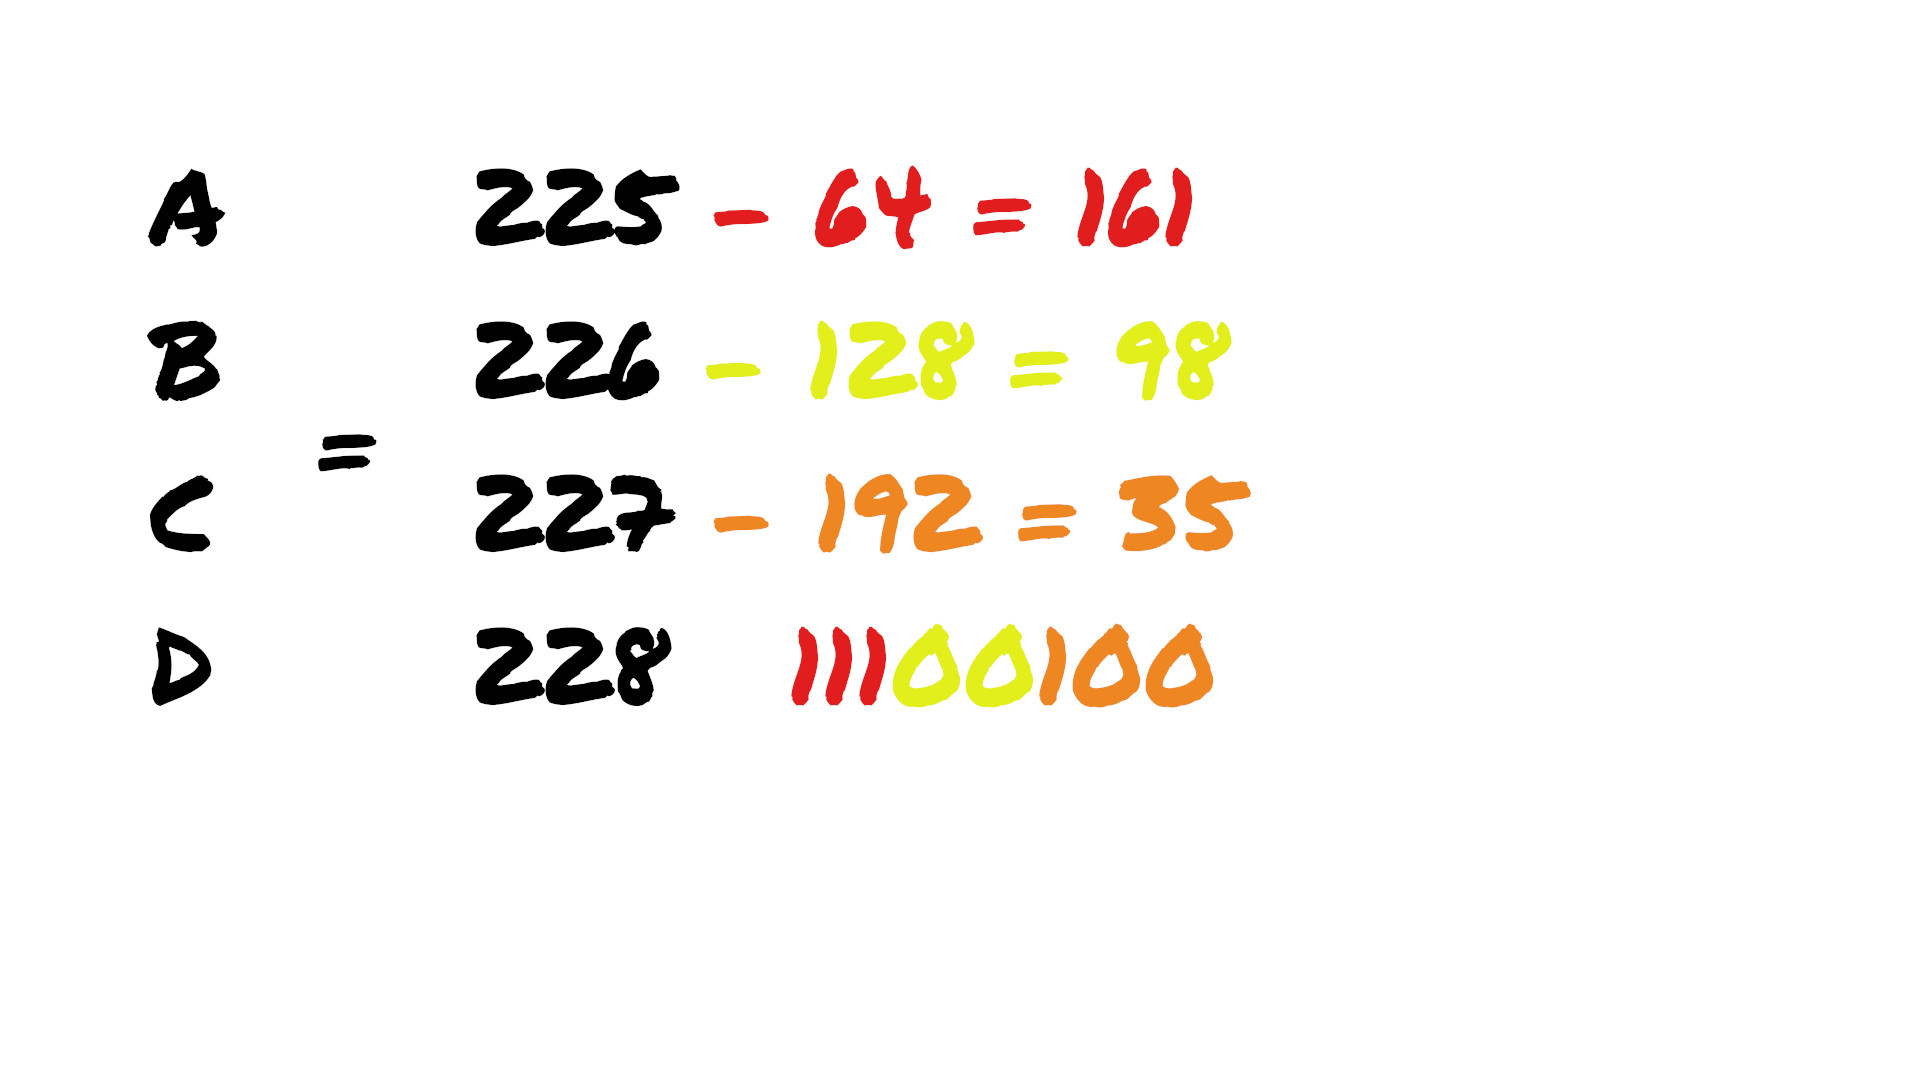 A 225 - 64 = 161
B 226 - 128 = 98
=
C 227 - 192 = 35
D 228 11100100